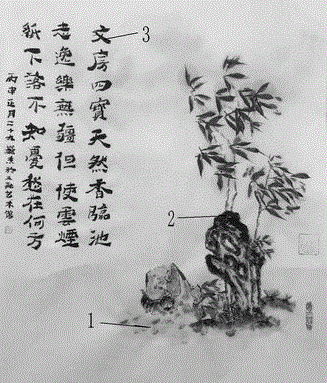 文房四寶天然香臨池
老逸樂無疆但使雲煙
紙下落不知憂愁在何方
丙申正月二十九
3
2
1